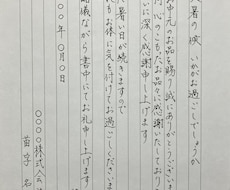 大暑の候 いかがお過ごしでしょうか
中元のお品を賜り誠にありがとうございま
心のこもったお品々に感謝いたしており
深く感謝申し上げます
暑い日が続きますので
もお体に気を付けてお過ごしくださいま
略儀ながら書中にてお礼申し上げます
〇〇年 〇月〇日
〇〇〇株式会
苗字 名